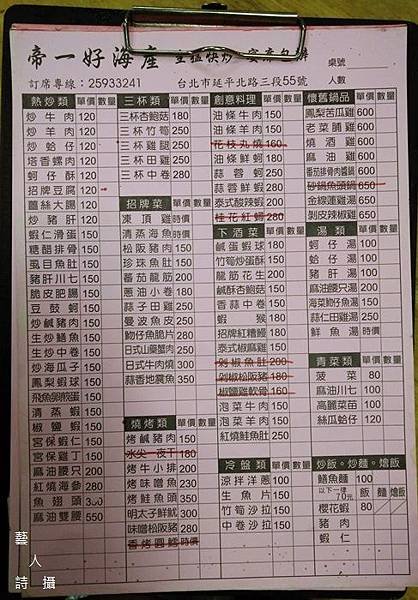 帝一好海產 生猛快炒 宴席包辦
桌號
訂席專線：25933241 台北市延平北路三段55號 人數
熱炒類 單價 數量
炒牛肉 120
炒羊肉 120
炒蛤仔 120
塔香螺肉 120
蚵仔酥 120
招牌豆腐 120
薑絲大腸 120
炒豬肝 120
蝦仁滑蛋 150
糖醋排骨 150
虱目魚肚 150
豬肝川七 150
脆皮肥腸 150
豆豉蚵 150
炒鹹豬肉 150
生炒鱔魚 150
生炒中卷 150
炒海瓜子 150
鳳梨蝦球 150
飛魚卵煎蛋 150
清蒸蝦 150
椒鹽蝦 150
宮保蝦仁 150
宮保雞丁 150
麻油腰只 200
紅燒海參 280
魚翅頭 350
麻油雙腰 550
三杯類 單價 數量
三杯杏鮑菇 180
三杯竹筍 250
三杯雞腿 250
三杯田雞 250
三杯中卷 280
招牌菜 單價 數量
凍頂雞 時價
清蒸海魚 時價
松阪豬肉 150
珍珠魚肚 150
蕃茄龍筋 200
蔥油小卷 180
蒜子田雞 250
曼波魚皮 250
魩仔魚脆片 280
日式山藥蟹肉 250
日式牛肉燒 300
蒜香地震魚 350
燒烤類 單價 數量
烤鹹豬肉 150
水尖一夜干 180
烤牛小排 200
烤味噌魚 230
烤鮭魚頭 350
明太子鮮魷 300
味噌松阪豬 280
香烤圓鱈 時價
創意料理 單價 數量
油條牛肉 150
油條羊肉 150
花枝丸燒 160
油條蚵仔 180
蒜蓉蚵 250
蒜蓉鮮蝦 280
泰式酸辣蝦 200
桂花紅蟳 280
下酒菜 單價 數量
鹹蛋蝦球 180
竹筍炒蛋酥 150
龍筋花生 200
鹹酥杏鮑菇 150
香蒜中卷 150
蝦猴 180
招牌紅糟鰻 180
泰式椒麻雞 150
剁椒魚肚 200
剁椒松阪豬 180
椒鹽雞軟骨 160
泡菜牛肉 150
泡菜羊肉 150
紅燒鮭魚肚 250
冷盤類 單價 數量
涼拌洋蔥 100
生魚片 200
竹筍沙拉 150
中卷沙拉 150
懷舊鍋品 單價 數量
鳳梨苦瓜雞 600
老菜脯雞 600
燒酒雞 600
麻油雞 600
番茄排骨肉醬鍋 600
砂鍋魚頭鍋 650
金線蓮雞湯 600
剝皮辣椒雞 600
湯類 單價 數量
蚵仔湯 100
蛤仔湯 100
豬肝湯 100
麻油腰只湯 200
海菜魩仔魚湯 150
蒜仁田雞湯 250
鮮魚湯 時價
青菜類 單價 數量
菠菜 80
麻油川七 100
高麗菜苗 100
絲瓜蛤仔 120
炒飯。炒麵。燴飯
鱔魚麵 100
以下一律70元 飯 麵 燴飯
櫻花蝦 80
豬肉
蝦仁
藝人詩攝